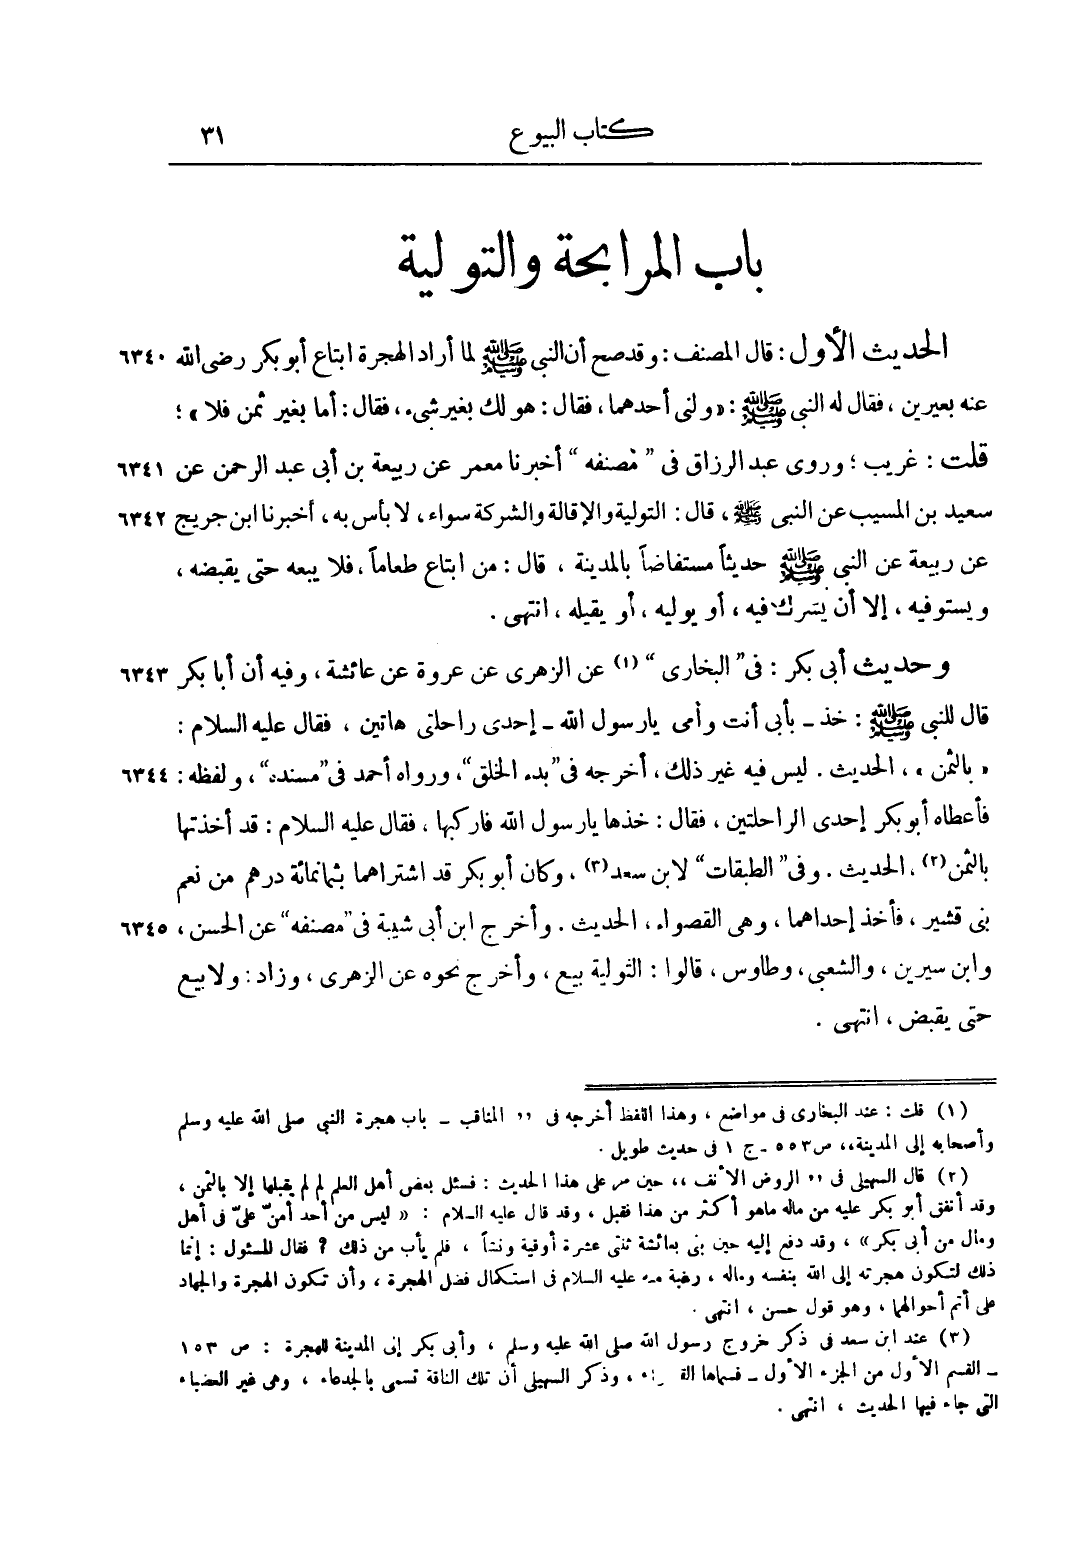 كتاب البيوع ٣١
باب المرابحة والتولية
الحديث الأول : قال المصنف : وقد صح أن النبي ﷺ لما أراد الهجرة ابتاع أبو بكر رضى الله ٦٣٤٠
عنه بعيرين ، فقال له النبي ﷺ : « ولنى أحدهما ، فقال : هو لك بغير شىء ، فقال : أما بغير ثمن فلا » ؛
قلت : غريب ؛ وروى عبد الرزاق فى " مُصنفه " أخبرنا معمر عن ربيعة بن أبى عبد الرحمن عن ٦٣٤١
سعيد بن المسيب عن النبى ﷺ ، قال : التولية والإقالة والشركة سواء ، لا بأس به ، أخبرنا ابن جريج ٦٣٤٢
عن ربيعة عن النبى ﷺ حديثاً مستفاضاً بالمدينة ، قال : من ابتاع طعاماً ، فلا يبعه حتى يقبضه ،
ويستوفيه ، إلا أن يشرك فيه ، أو يوليه ، أو يقيله ، انتهى .
وحديث أبى بكر : فى " البخارى " (١) عن الزهرى عن عروة عن عائشة ، وفيه أن أبا بكر ٦٣٤٣
قال للنبى ﷺ : خذ ـ بأبى أنت وأمى يارسول الله ـ إحدى راحلتى هاتين ، فقال عليه السلام :
« بالثمن » ، الحديث . ليس فيه غير ذلك ، أخرجه فى " بدء الخلق " ، ورواه أحمد فى " مسنده " ، ولفظه : ٦٣٤٤
فأعطاه أبو بكر إحدى الراحلتين ، فقال : خذها يارسول الله فاركبها ، فقال عليه السلام : قد أخذتها
بالثمن (٢) ، الحديث . وفى " الطبقات " لابن سعد (٣) ، وكان أبو بكر قد اشتراهما بثمانمائة درهم من نعم
بنى قشير ، فأخذ إحداهما ، وهى القصواء ، الحديث . وأخرج ابن أبى شيبة فى " مصنفه " عن الحسن ، ٦٣٤٥
وابن سيرين ، والشعبى ، وطاوس ، قالوا : التولية بيع ، وأخرج نحوه عن الزهرى ، وزاد : ولا بيع
حتى يقبض ، انتهى .
(١) قلت : عند البخارى فى مواضع ، وهذا اللفظ أخرجه فى ,, المناقب ـ باب هجرة النبي صلى الله عليه وسلم
وأصحابه إلى المدينة ،، ص ٥٥٣ ـ ج ١ فى حديث طويل .
(٢) قال السهيلى فى ,, الروض الأنف ،، حين مر على هذا الحديث : فسئل بعض أهل العلم لم لم يقبلها إلا بالثمن ،
وقد أنفق أبو بكر عليه من ماله ماهو أكثر من هذا فقبل ، وقد قال عليه السلام : « ليس من أحد أمنّ علىّ فى أهل
ومال من أبى بكر » ، وقد دفع إليه حين بنى بعائشة ثنتى عشرة أوقية ونشاً ، فلم يأب من ذلك ؟ فقال المسئول : إنما
ذلك لتكون هجرته إلى الله بنفسه وماله ، رغبة منه عليه السلام فى استكمال فضل الهجرة ، وأن تكون الهجرة والجهاد
على أتم أحوالهما ، وهو قول حسن ، انتهى .
(٣) عند ابن سعد فى ذكر خروج رسول الله صلى الله عليه وسلم ، وأبى بكر إلى المدينة للهجرة : ص ١٥٣
ـ القسم الأول من الجزء الأول ـ فسماها ، وذكر السهيلى أن تلك الناقة تسمى بالجدعاء ، وهى غير العضباء
التى جاء فيها الحديث ، انتهى .